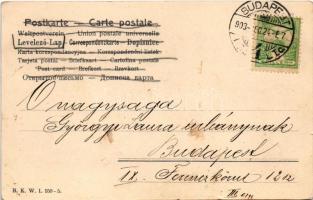 Postkarte — Carte postale
Weltpostverein — Union postale universelle
Levelező-Lap Correspondenzkarte — Dopisnice
Karta korespondencyjna — Korespondenční lístek
Tarjeta postal — Briefkaart — Cartolina postale
Post card — Brefkort — Brevkort
Открытое письмо — Дописна карта
BUDAPEST
Ő nagysága
Györgyi
úrhölgynek
Budapest
IX. Ferenc körút 12
B. K. W. I. 150-5.